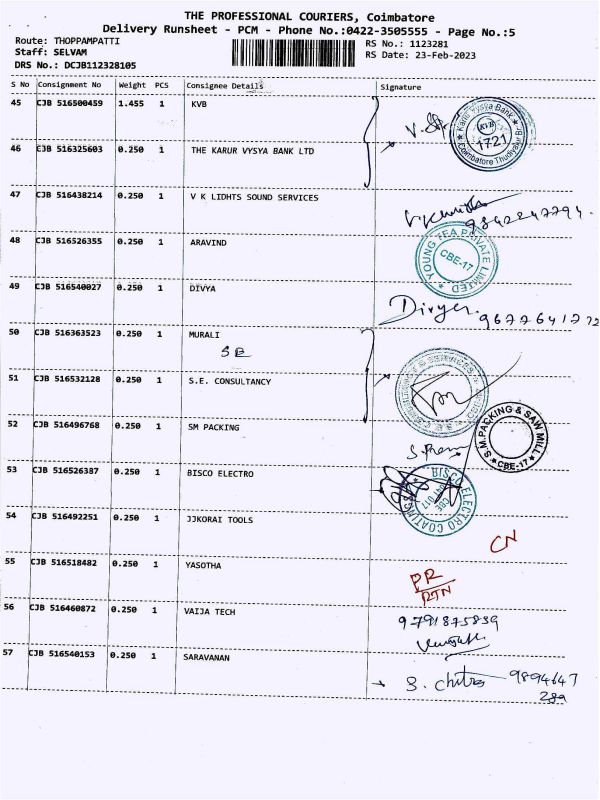 THE PROFESSIONAL COURIERS, Coimbatore
Delivery Runsheet - PCM - Phone No.:0422-3505555 - Page No.:5
Route: THOPPAMPATTI
RS No.: 1123281
Staff: SELVAM
RS Date: 23-Feb-2023
DRS No.: DCJB112328105
S No Consignment No Weight PCS Consignee Details Signature
45 CJB 516500459 1.455 1 KVB
Karur Vysya Bank KVB 1721 Coimbatore Thudiyalur Br
46 CJB 516325603 0.250 1 THE KARUR VYSYA BANK LTD
47 CJB 516438214 0.250 1 V K LIDHTS SOUND SERVICES
9842247794.
48 CJB 516526355 0.250 1 ARAVIND
YOUNG TEA PRIVATE LIMITED CBE-17
49 CJB 516540027 0.250 1 DIVYA
Divya.
50 CJB 516363523 0.250 1 MURALI
SE
51 CJB 516532128 0.250 1 S.E. CONSULTANCY
52 CJB 516496768 0.250 1 SM PACKING
S.M.PACKING & SAW MILL CBE-17
53 CJB 516526387 0.250 1 BISCO ELECTRO
BISCO ELECTRO COATINGS CBE 017
54 CJB 516492251 0.250 1 JJKORAI TOOLS
CN
55 CJB 516518482 0.250 1 YASOTHA
PR
RTN
56 CJB 516460872 0.250 1 VAIJA TECH
9791875839
57 CJB 516540153 0.250 1 SARAVANAN
S. Chitra 9894647
289